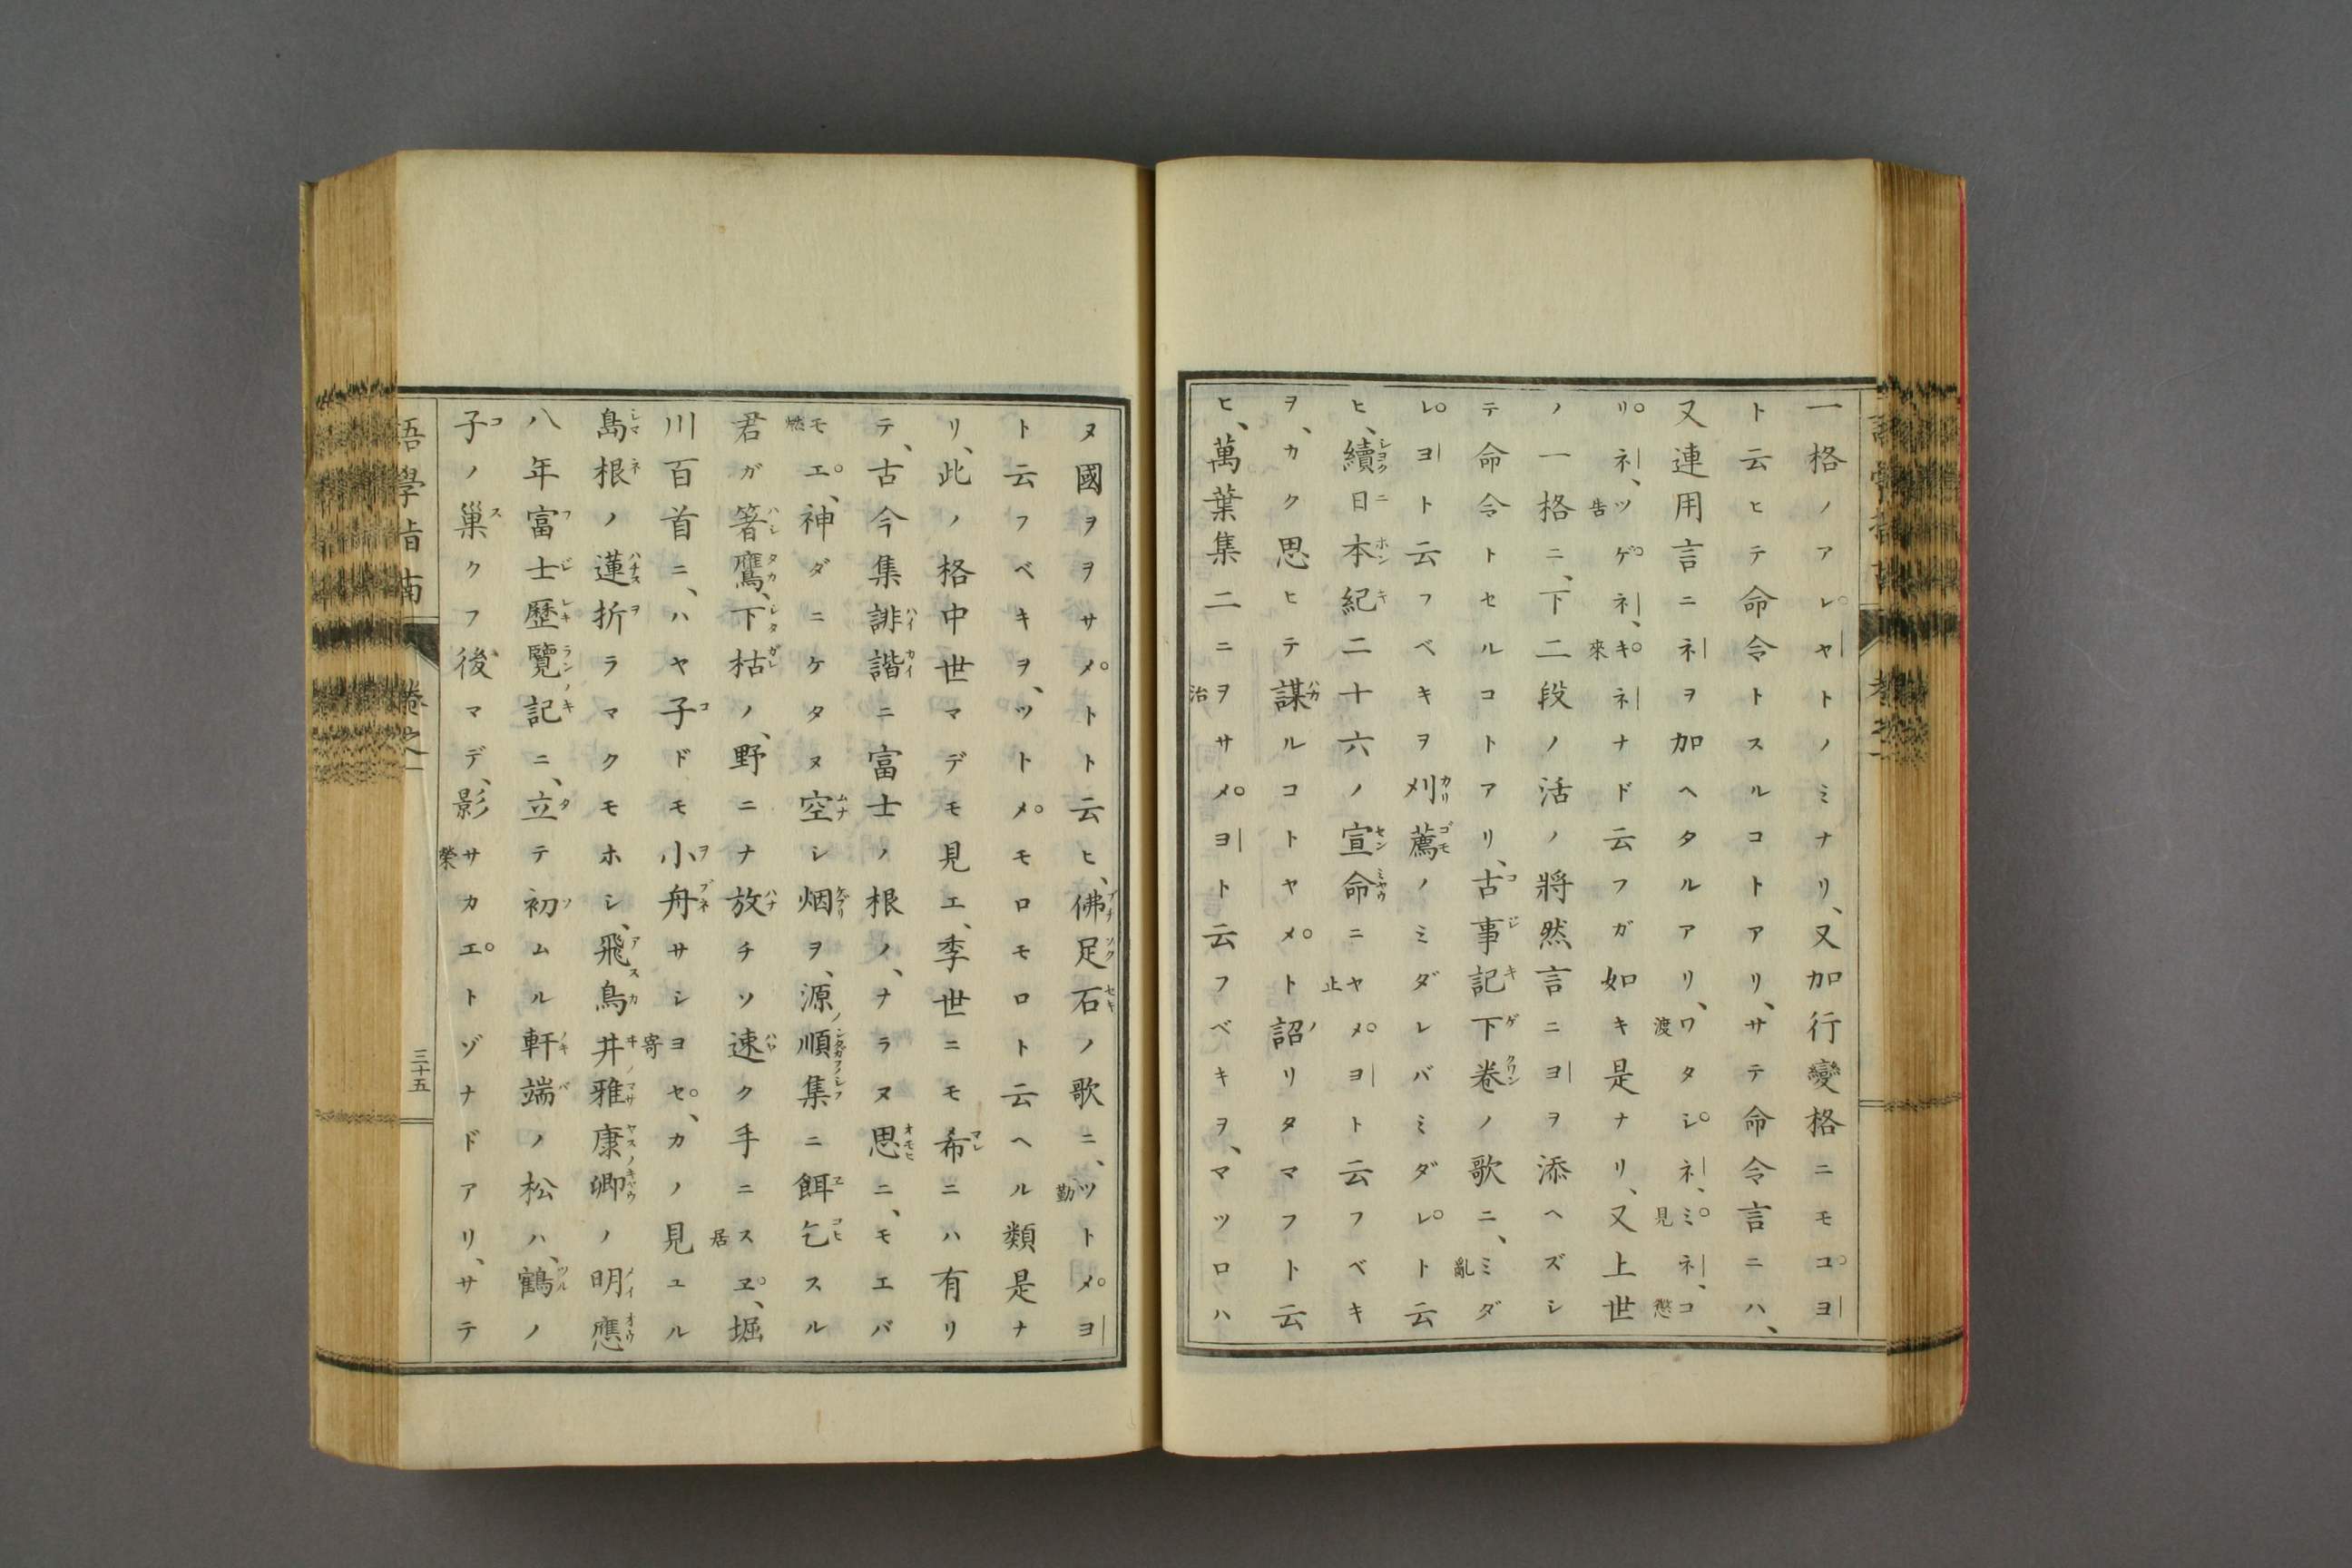 一格ノアレヤトノミナリ、又加行變格ニモコヨ
ト云ヒテ命令トスルコトアリ、サテ命令言ニハ、
又連用言ニネヲ加ヘタルアリ、ワタシネ、ミネ、コ
リネ、ツゲネ、キネナド云フガ如キ是ナリ、又上世
ノ一格ニ、下二段ノ活ノ將然言ニヨヲ添ヘズシ
テ命令トセルコトアリ、古事記下卷ノ歌ニ、ミダ
レヨト云フベキヲ刈薦ノミダレバミダレト云
ヒ、續日本紀二十六ノ宣命ニヤメヨト云フベキ
ヲ、カク思ヒテ謀ルコトヤメト詔リタマフト云
ヒ、萬葉集二ニヲサメヨト云フベキヲ、マツロハ
ヌ國ヲヲサメトト云ヒ、佛足石ノ歌ニ、ツトメヨ
ト云フベキヲ、ツトメモロモロト云ヘル類是ナ
リ、此ノ格中世マデモ見エ、季世ニモ希ニハ有リ
テ、古今集誹諧ニ富士ノ根ノ、ナラヌ思ニ、モエバ
モエ、神ダニケタヌ空シ烟ヲ、源順集ニ餌乞スル
君ガ箸鷹、下枯ノ、野ニナ放チソ速ク手ニスヱ、堀
川百首ニ、ハヤ子ドモ小舟サシヨセ、カノ見ユル
島根ノ蓮折ラマクモホシ、飛鳥井雅康卿ノ明應
八年富士歷覽記ニ、立テ初ムル軒端ノ松ハ、鶴ノ
子ノ巢クフ後マデ、影サカエトゾナドアリ、サテ
語學指南
卷之一
三十五